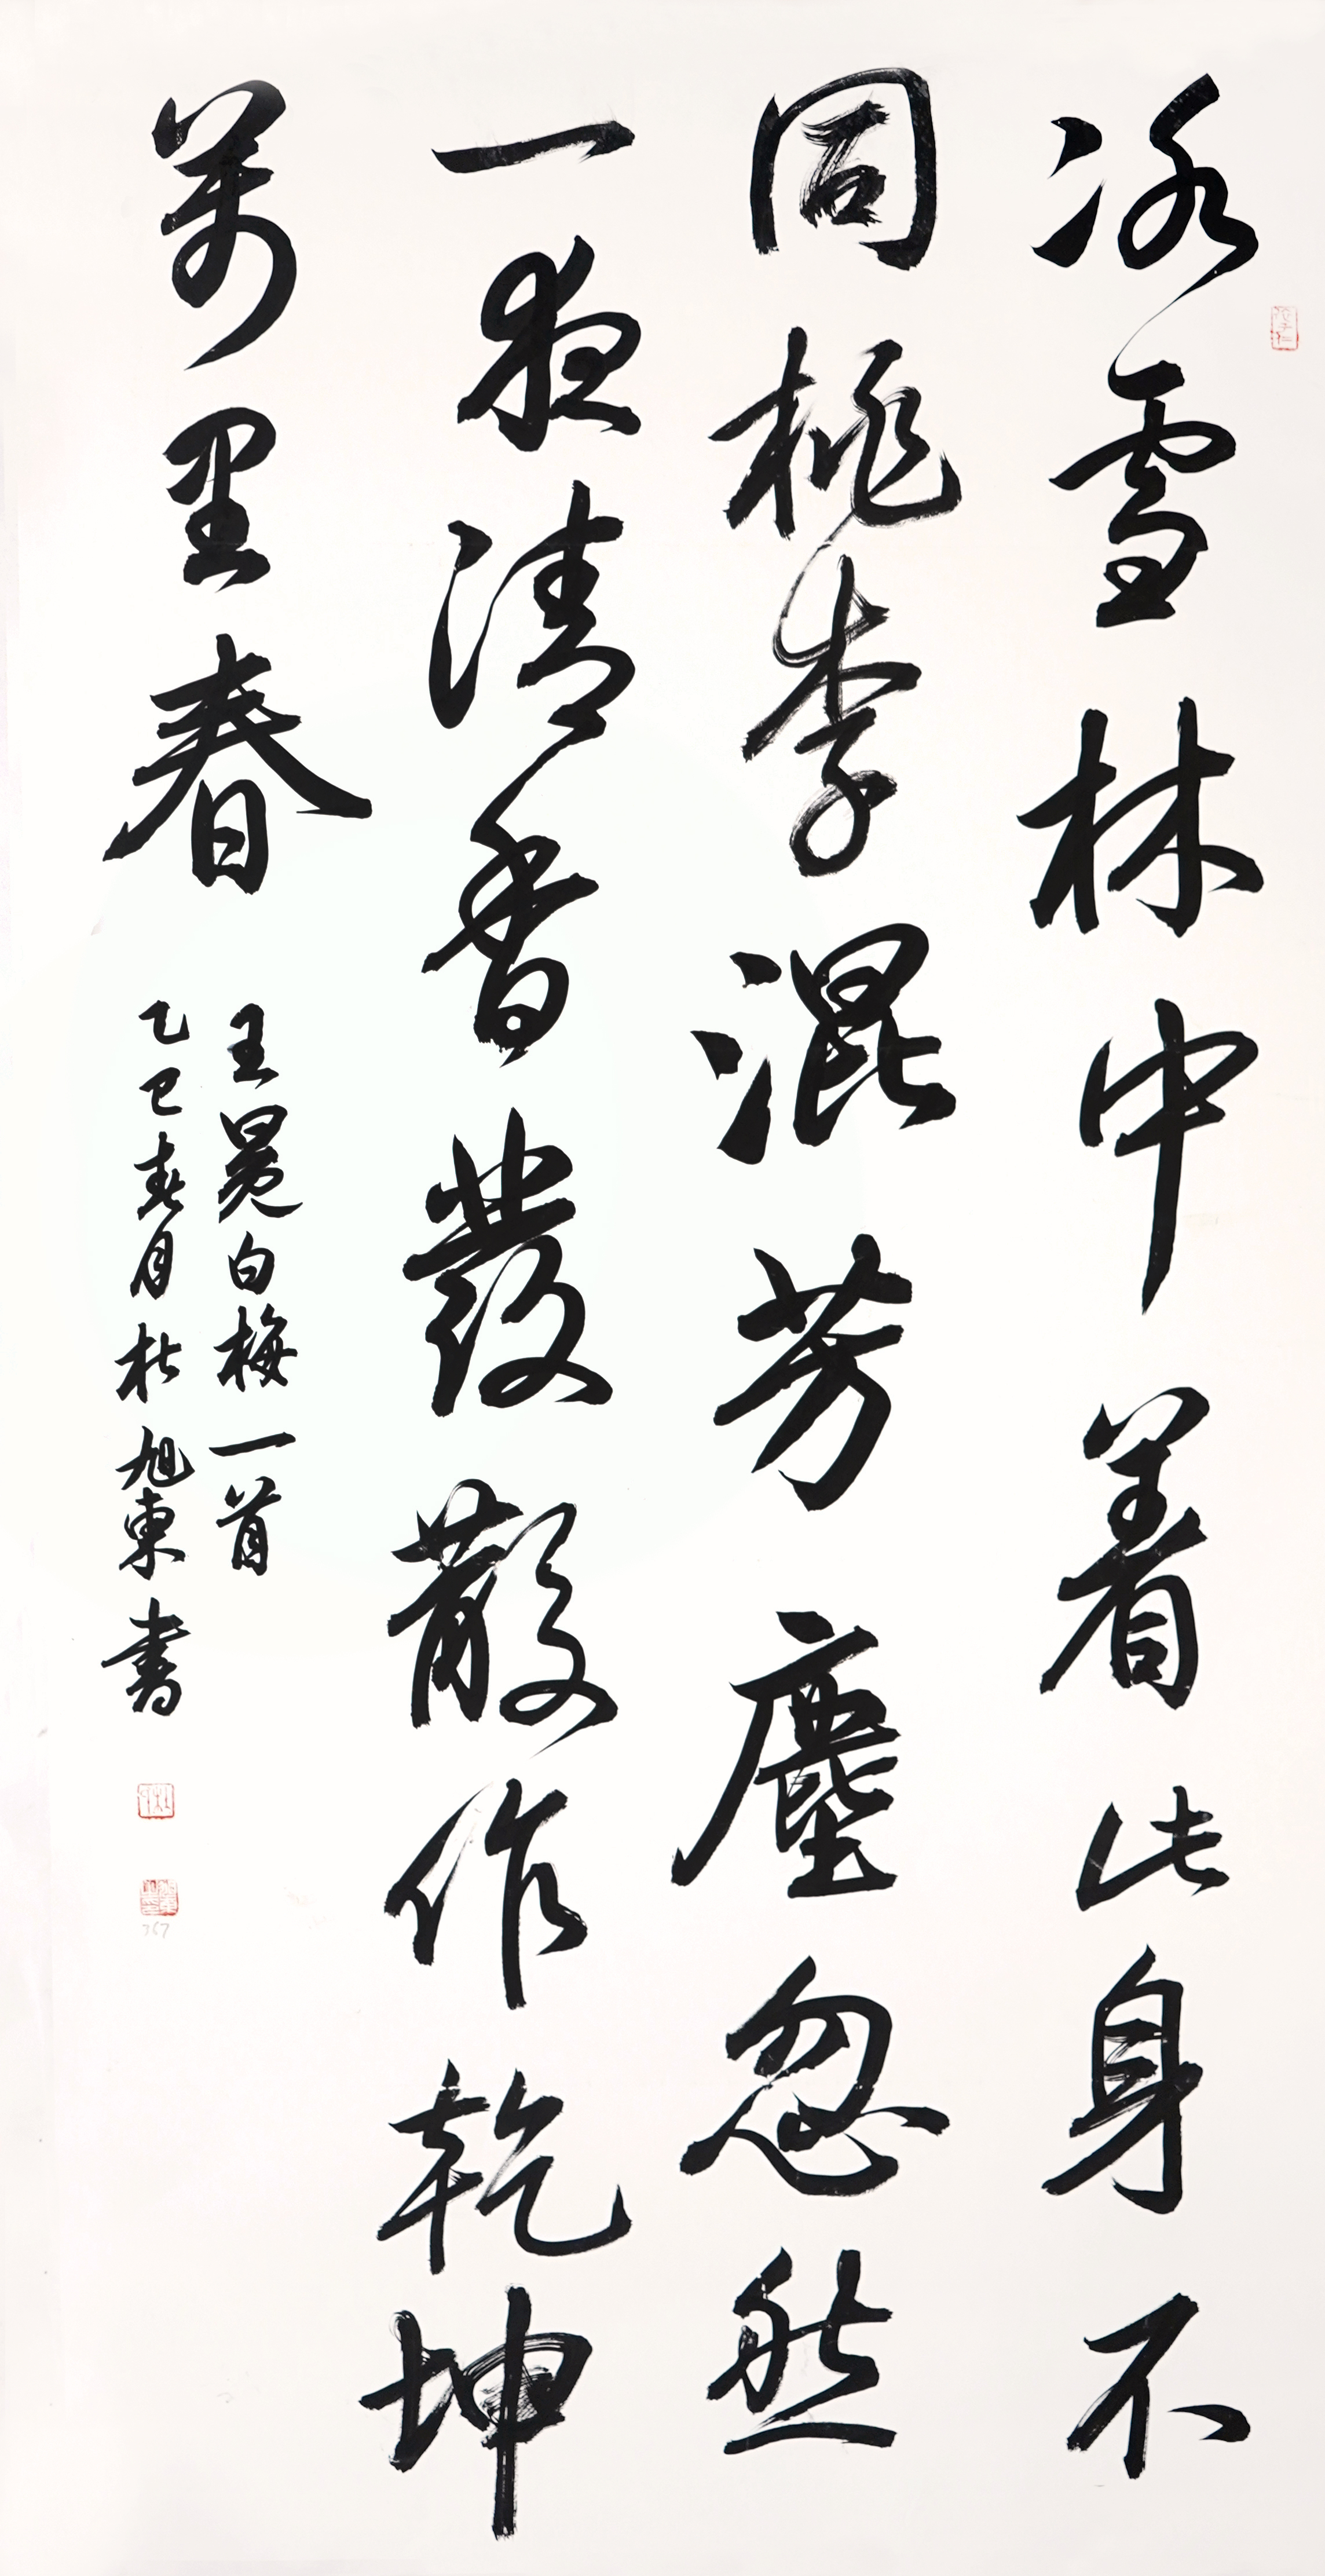 冰雪林中着此身不
同桃李混芳塵忽然
一夜清香發散作乾坤
萬里春
王冕白梅一首
乙巳春月杜旭東書
367